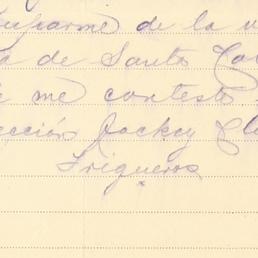 Informé de la v
a de Santo To
me contesto
ección Jockey Cl
Trigueros